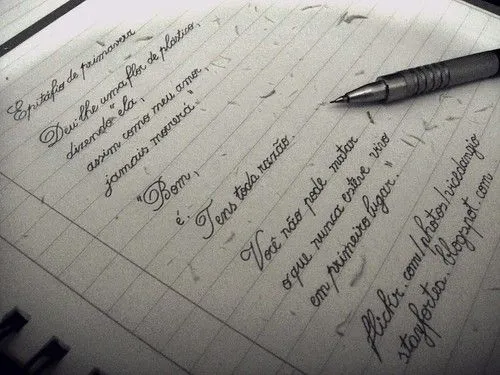 Epitáfio de primavera
Deu-lhe uma flor de plástico,
dizendo "ela,
assim como meu amor,
jamais morrerá."
"Bom,
é. Tens toda razão.
Você não pode matar
o que nunca esteve vivo
em primeiro lugar."
flickr.com/photos/viedangio
stayfortea.blogspot.com